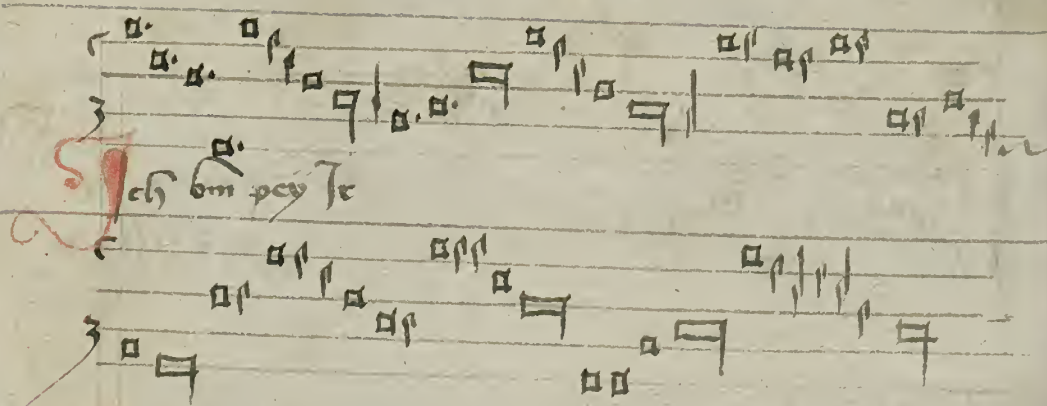 Ich bin pey Ir